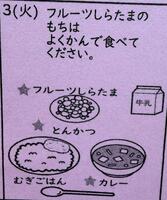 3(火) フルーツしらたまの
もちは
よくかんで食べて
ください。
フルーツしらたま
牛乳
とんかつ
むぎごはん
カレー